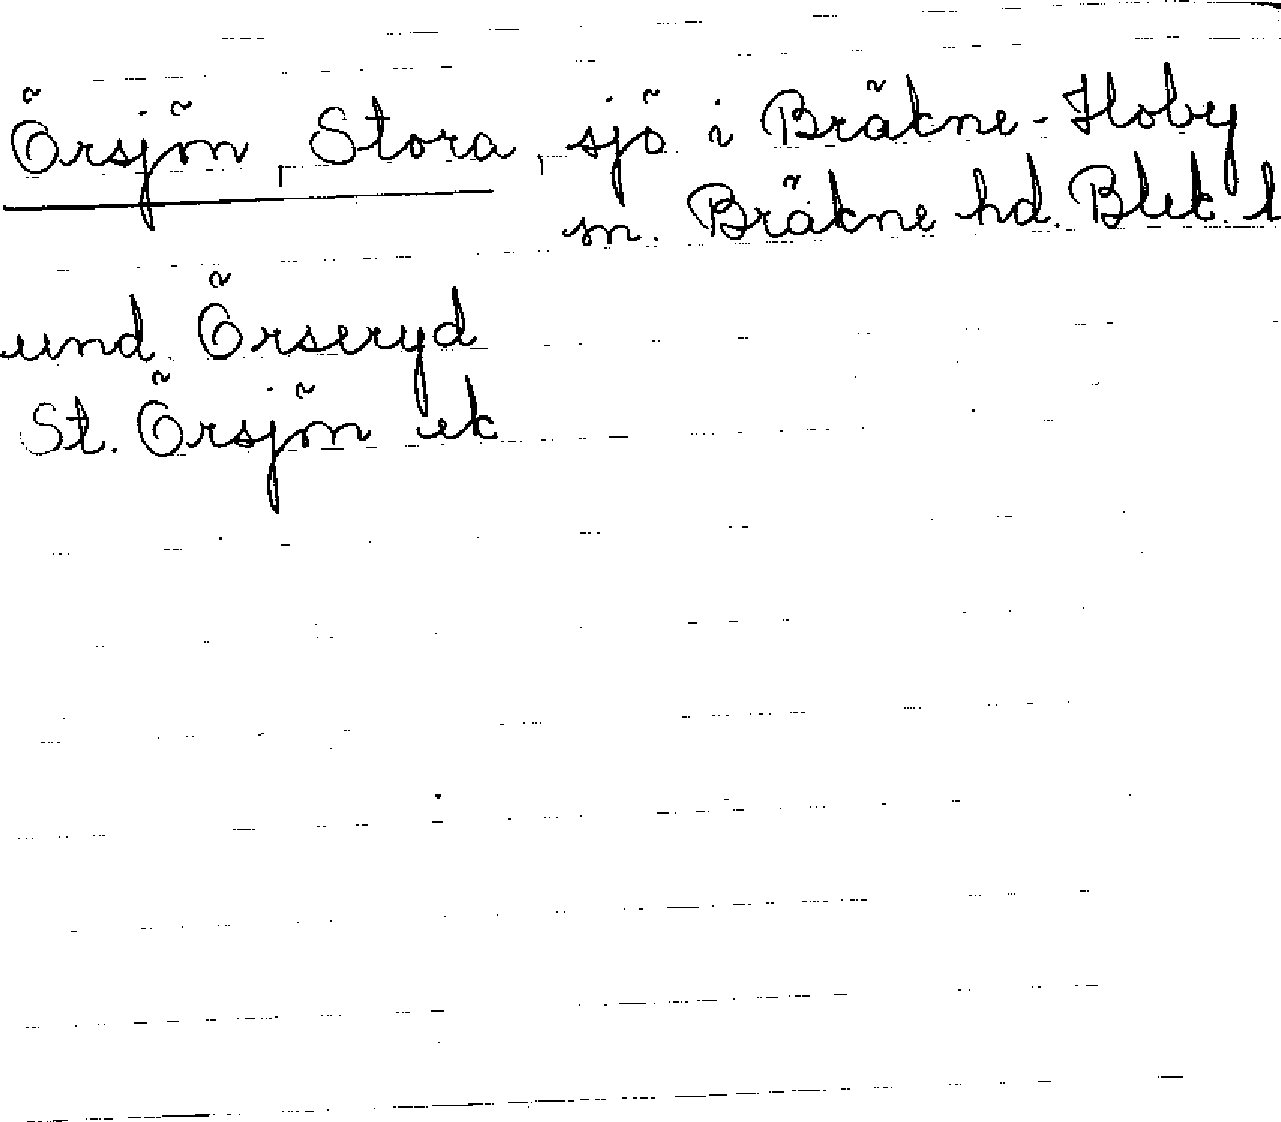 Örsjön, Stora, sjö i Bräkne-Hoby
sn. Bräkne hd. Blek. l
und. Örseryd
St. Örsjön ek